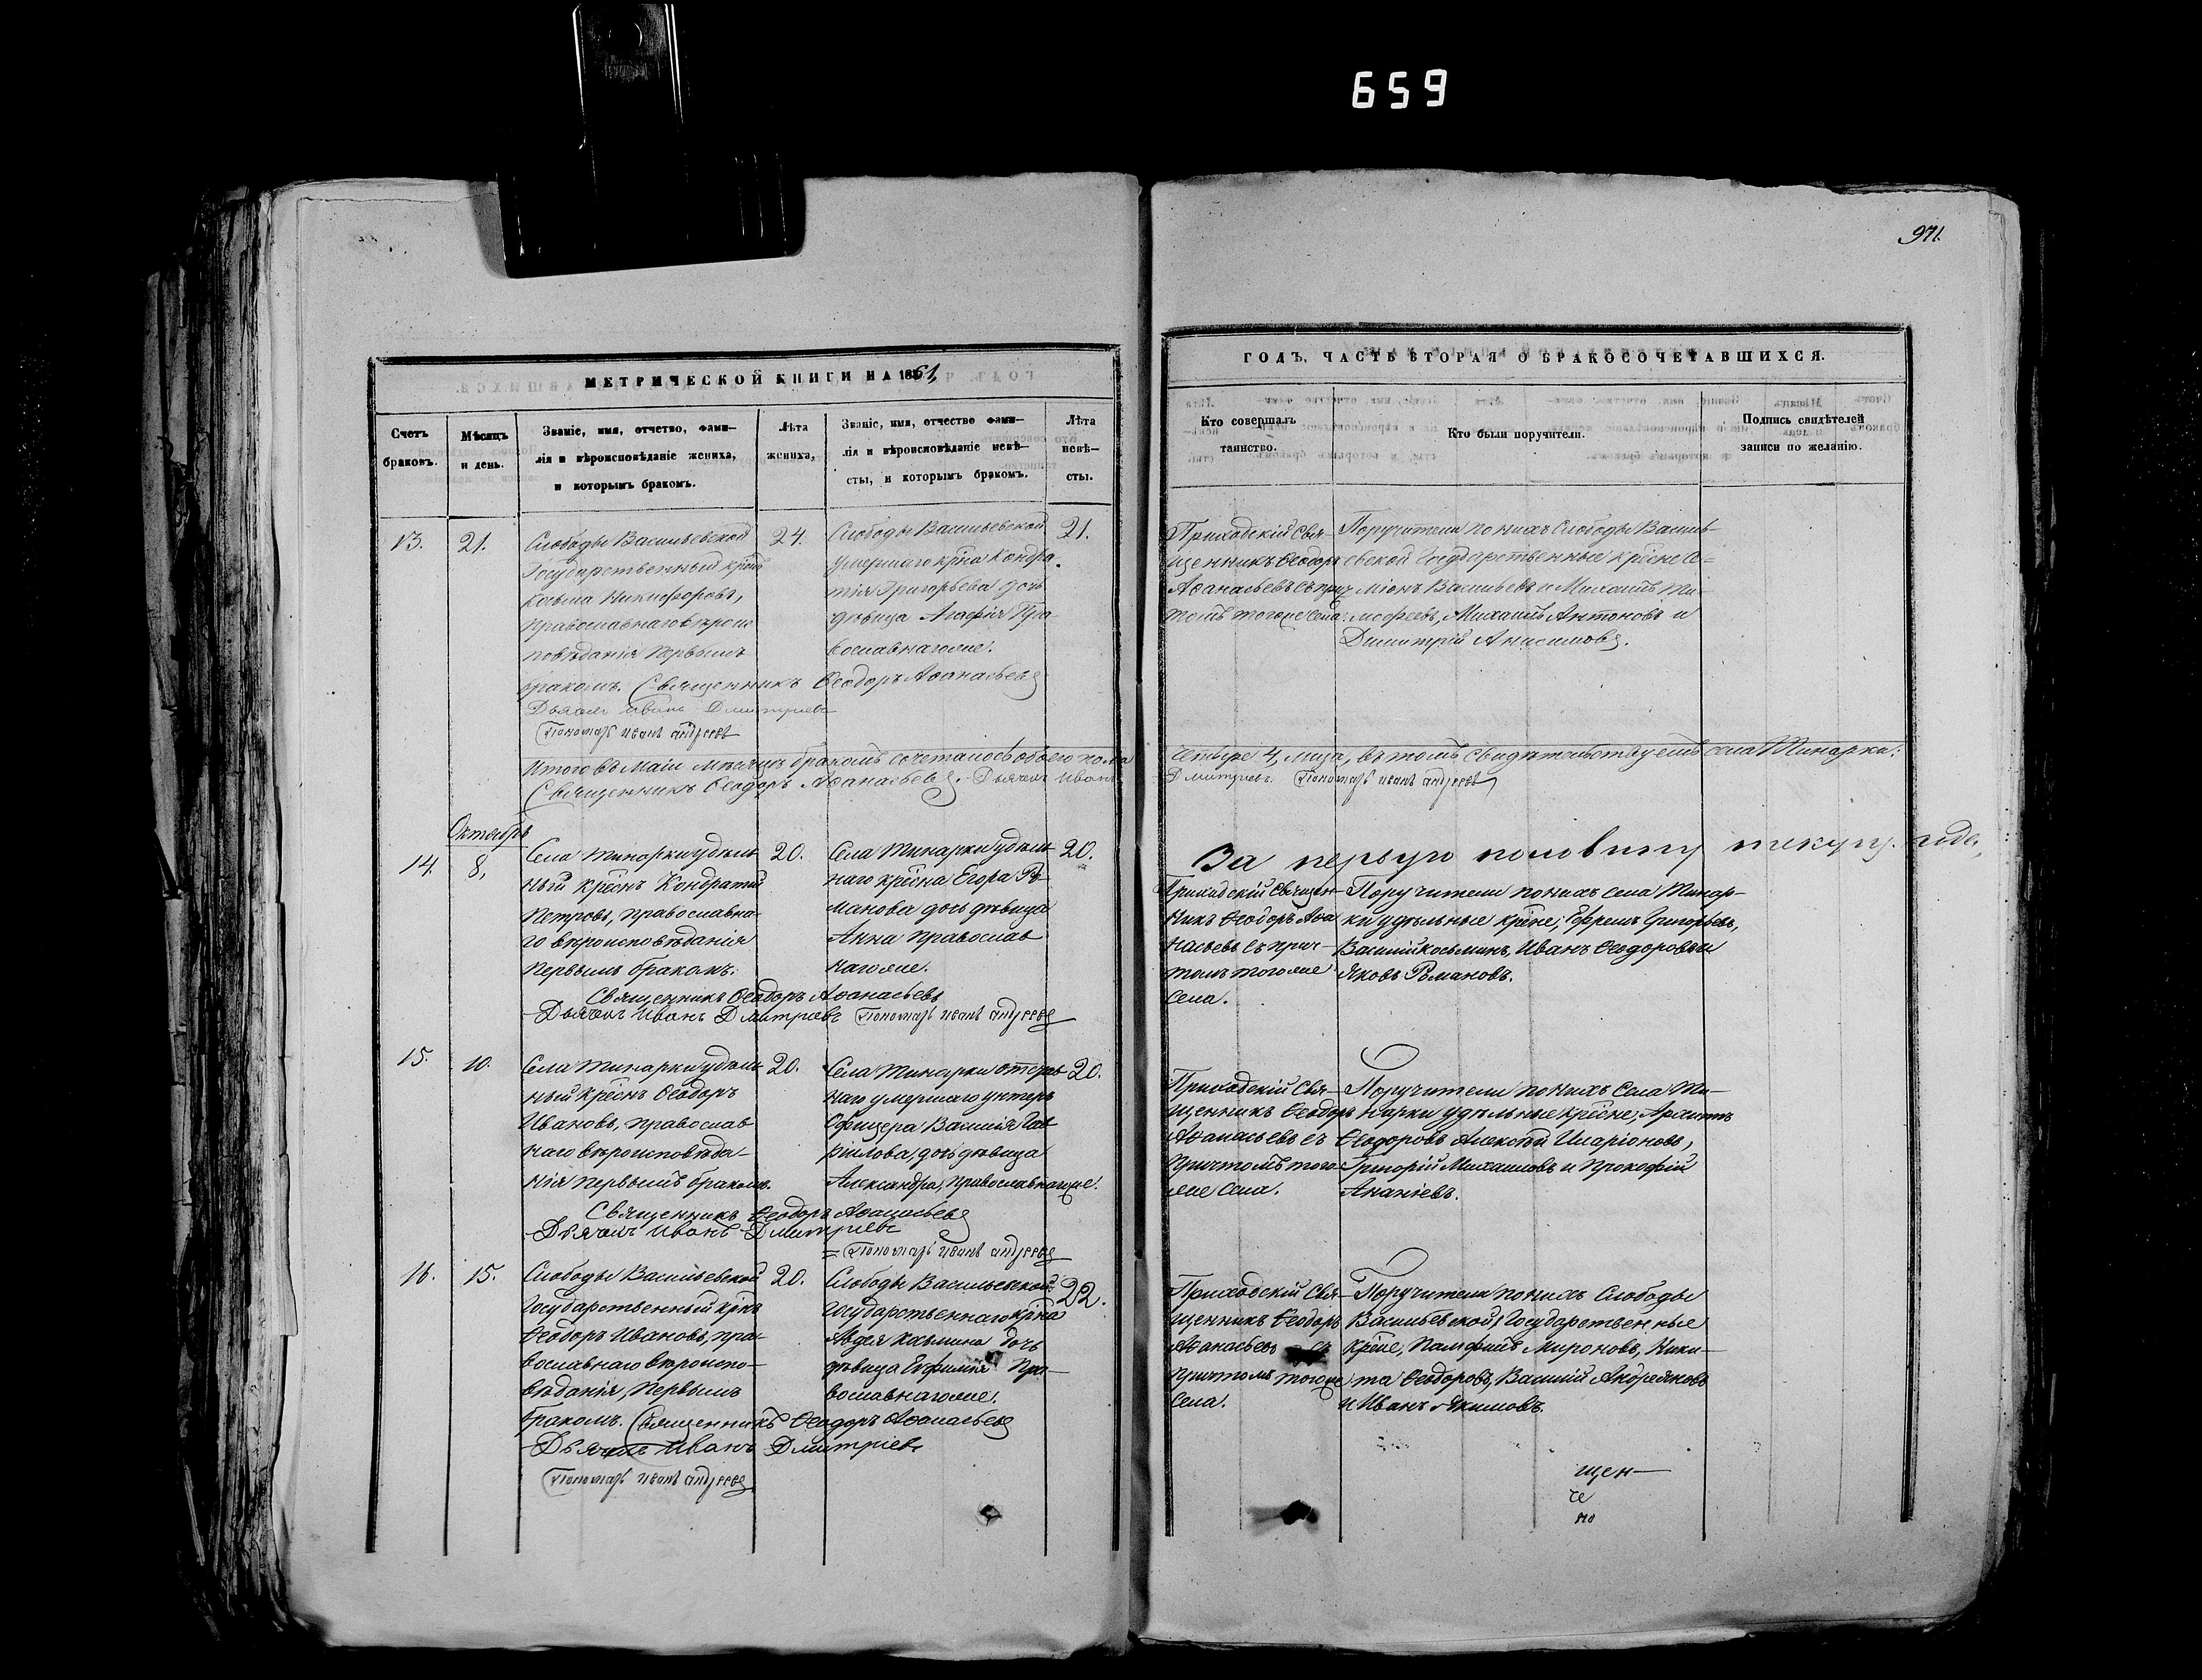 659
971.
МЕТРИЧЕСКОЙ КНИГИ НА 1861,
ГОДЪ, ЧАСТЬ ВТОРАЯ О БРАКОСОЧЕТАВШИХСЯ.
Счетъ браковъ.
Мѣсяцъ и день.
Званіе, имя, отчетво, фами-
лія и вѣроисповѣданіе жениха,
и которымъ бракомъ.
Лѣта
жениха,
Званіе, имя, отчество фами-
лія и вѣроисповѣданіе невѣ-
сты, и которымъ бракомъ.
Лѣта
невѣ-
сты.
Кто совершалъ
таинство.
Кто были поручители.
Подпись свидѣтелей
записи по желанію.
13.
21.
Слободы Васильевской
Государственный крѣнъ
Косьма Никифоровъ,
православнаго вѣроис
повѣданія первымъ
бракомъ. Священникъ Ѳеодоръ Аѳанасьевъ
Дьячекъ Иванъ Дмитриевъ
Пономарь Иванъ Андреевъ
24.
Слободы Васильевской
умершаго крѣна Кондра
тія Григорьева дочь
дѣвица Агафія Пра
вославнагоже.
21.
Приходскій Свя-
щенникъ Ѳеодоръ
Аѳанасьевъ съ прич
томъ тогоже села.
Поручители по нихъ Слободы Василь-
евской Государственные крѣне Се-
міонъ Васильевъ и Михаилъ Ти-
мофеевъ, Михаилъ Антоновъ и
Димитрій Анисимовъ.
Итого въ Маіи мѣсяцѣ бракомъ сочеталось обоего пола
четыре 4, лица, въ томъ свидѣтельствуемъ села Тинарки:
Священникъ Ѳеодоръ Аѳанасьевъ. Дьячекъ Иванъ
Дмитриевъ. Пономарь Иванъ Андреевъ
Октябрь
14.
8,
Села Тинарки удѣль
ный крѣснъ Кондратій
Петровъ, православна-
го вѣроисповѣданія
первымъ бракомъ.
Священникъ Ѳеодоръ Аѳанасьевъ
Дьячекъ Иванъ Дмитриевъ Пономарь Иванъ Андреевъ
20.
Села Тинарки удѣль
наго крѣсна Егора Ро-
манова дочь дѣвица
Анна православ
нагоже.
20.
За первую половину текущ. года,
Приходскій Священ-
никъ Ѳеодоръ Аѳа
насьевъ съ прич-
томъ тогоже
села.
Поручители по нихъ села Тинар-
ки удѣльные крѣсне; Ефремъ Григорьевъ,
Василій Косьминъ, Иванъ Ѳеодоровъ и
Яковъ Романовъ.
15.
10.
Села Тинарки удѣль
ный крѣснъ Ѳеодоръ
Ивановъ, православ
наго вѣроисповѣда-
нія первымъ бракомъ.
Священникъ Ѳеодоръ Аѳанасьевъ
Дьячекъ Иванъ Дмитриевъ
Пономарь Иванъ Андреевъ
20.
Села Тинарки
наго умершаго унтеръ
Офицера Василія Гав
рилова, дочь дѣвица
Александра, православнагоже.
20.
Приходскій Свя-
щенникъ Ѳеодоръ
Аѳанасьевъ съ
причтомъ того
же села.
Поручители по нихъ Села Ти-
нарки удѣльные крѣсне;
Ѳеодоровъ Алексѣй Иларіоновъ,
Григорій Михаиловъ и Прокофій
Ананіевъ.
16.
15.
Слободы Васильевской
Государственный крѣнъ
Ѳеодоръ Ивановъ, пра-
вославнаго вѣроиспо-
вѣданія, первымъ
бракомъ. Священникъ Ѳеодоръ Аѳанасьевъ
Дьячекъ Иванъ Дмитріевъ
Пономарь Иванъ Андреевъ
20.
Слободы Васильевской
Государственнаго крѣна
Авдея Казьмина дочь
дѣвица Евфимія Пра-
вославнагоже.
22.
Приходскій Свя-
щенникъ Ѳеодоръ
Аѳанасьевъ съ
причтомъ тогоже
села.
Поручители по нихъ Слободы
Васильевской Государственные
крѣсне, Памфилъ Мироновъ, Ники-
та Ѳеодоровъ, Василій Андреяновъ
и Иванъ Якимовъ.
щен-